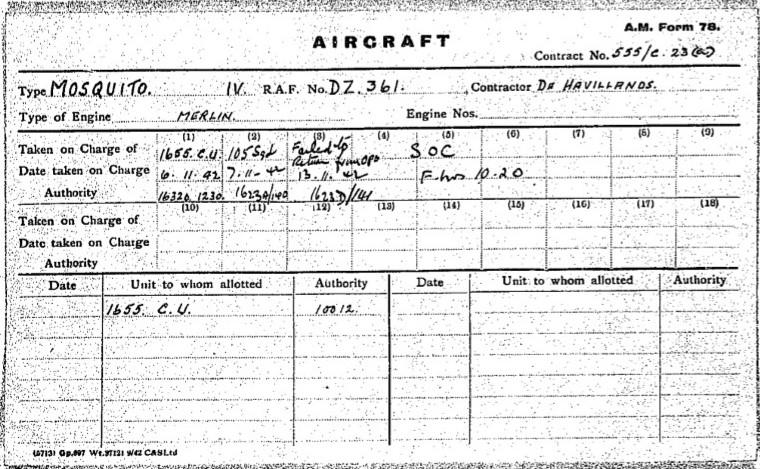 A.M. Form 78.
AIRCRAFT
Contract No. 555/C. 23(a)
Type MOSQUITO. IV. R.A.F. No. DZ. 361. Contractor DE HAVILLANDS.
Type of Engine MERLIN. Engine Nos.
(1) (2) (3) (4) (5) (6) (7) (8) (9)
Taken on Charge of 1655. C.U. 105 Sqd Failed to Return from OPS SOC
Date taken on Charge 6. 11. 42 7.11.42 13. 11. 42 F-hrs 10.20
Authority 16320. 1230. 1623D/140 1623D/141
(10) (11) (12) (13) (14) (15) (16) (17) (18)
Taken on Charge of
Date taken on Charge
Authority
Date Unit to whom allotted Authority Date Unit to whom allotted Authority
1655. C.U. 10012.
Gp.697 9/42 CASLtd